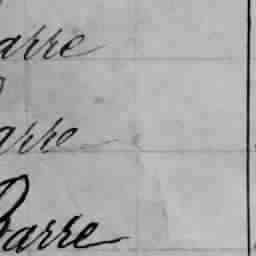 arre
arre
Barre